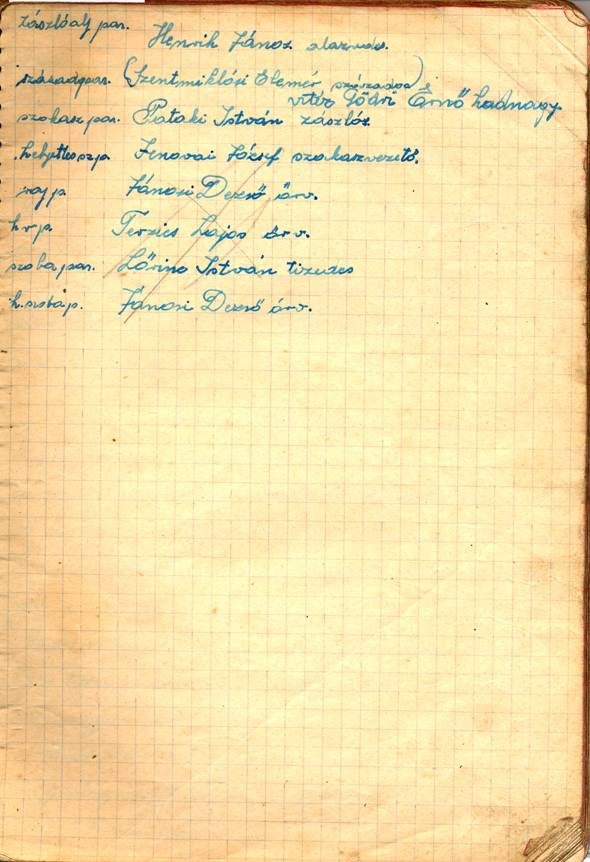 zászlóalj par. Henrik János alezredes.
századpar. (Szentmiklósi Elemér százados)
vitéz Gödri Ernő hadnagy
szakasz par. Pataki István zászlós.
helyettes szp. József szakaszvezető.
raj p. Jánosi Dezső őrv.
h r p. Terzics Lajos őrv.
szoba par. Lőrinc István tizedes
h. szobap. Jánosi Dezső őrv.